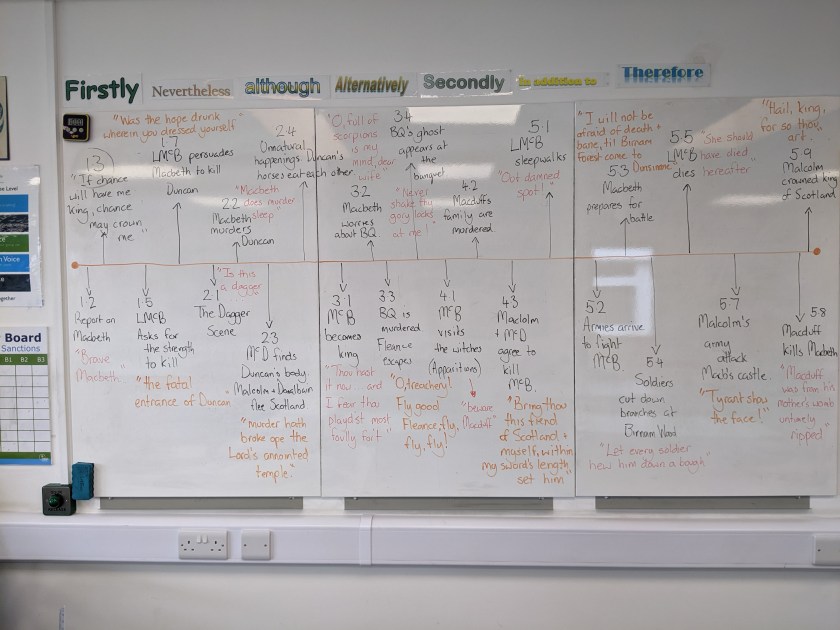 Firstly
Nevertheless
although
Alternatively
Secondly
In addition to
Therefore
"Was the hope drunk
wherein you dressed yourself"
1.3
"If chance
will have me
king, chance
may crown
me"
1.7
LMcB persuades
Macbeth to kill
Duncan
2.2
Macbeth
murders
Duncan
"Macbeth
does murder
sleep
2.4
Unnatural
happenings Duncan's
horses eat each other
"O, full of
scorpions
is my
mind, dear
wife"
3.2
Macbeth
worries
about BQ
3.4
BQ's ghost
appears at
the
banquet
"Never
shake thy
gory locks
at me!"
4.2
Macduff's
family are
murdered
5.1
LMcB
sleepwalks
"Out damned
spot!"
"I will not be
afraid of death +
bane, til Birnam
forest come to
Dunsinane"
5.3
Macbeth
prepares for
battle
5.5
LMcB
dies
"She should
have died
hereafter"
"Hail, king,
for so thou
art.
5.9
Malcolm
crowned king
of Scotland
1.2
Report on
Macbeth
"Brave
Macbeth"
1.5
LMcB
Asks for
the strength
to kill
"the fatal
entrance of Duncan
2.1
The Dagger
Scene
"Is this
a dagger"
2.3
McD finds
Duncan's body.
Malcolm + Donalbain
flee Scotland
"murder hath
broke ope the
Lord's annointed
temple."
3.1
McB
becomes
king
"Thou hast
it now... and
I fear thou
playdst most
foully for't"
3.3
BQ is
murdered
Fleance
escapes
"O treachery!
Fly good
Fleance, fly,
fly, fly!
4.1
McB
visits
the witches
(Apparitions)
"beware
Macduff"
4.3
Maclolm
+ McD
agree to
kill
McB.
"Bring thou
this fiend
of Scotland +
myself, within
my sword's length
set him"
5.2
Armies arrive
to fight
McB.
5.4
Soldiers
cut down
branches at
Birnam Wood
"Let every soldier
hew him down a bough"
5.7
Malcolm's
army
attack
Macb's castle.
"Tyrant show
the face!"
5.8
Macduff
kills Macbeth
"Macduff
was from his
mother's womb
untimely
ripped"
Board
Sanctions
B1 B2 B3